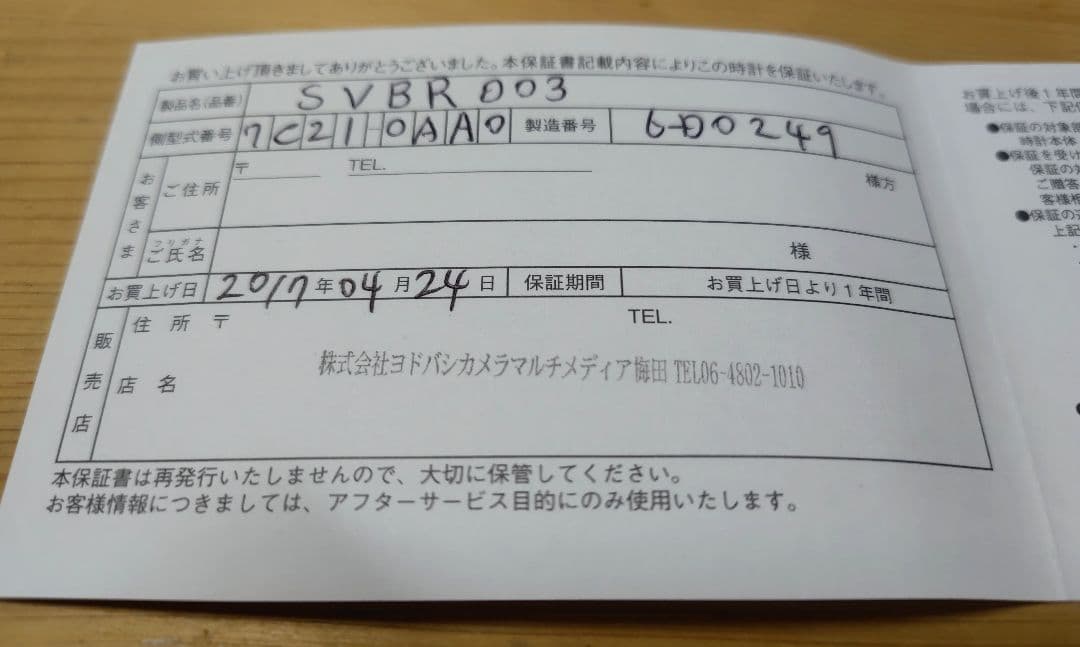 お買い上げ頂きましてありがとうございました。本保証書記載内容によりこの時計を保証いたします。
製品名(品番) SVBR003
側型式番号 7C21-0AA0 製造番号 6D0249
お客さま
ご住所 〒 TEL. 様方
フリガナ
ご氏名 様
お買上げ日 2017年04月24日 保証期間 お買上げ日より1年間
販売店
住所 〒 TEL.
店名 株式会社ヨドバシカメラマルチメディア梅田 TEL06-4802-1010
本保証書は再発行いたしませんので、大切に保管してください。
お客様情報につきましては、アフターサービス目的にのみ使用いたします。
お買上げ後1年間
場合には、下記保
●保証の対象
時計本体
●保証を受け
保証の対
ご贈答
客様相
●保証の
上記